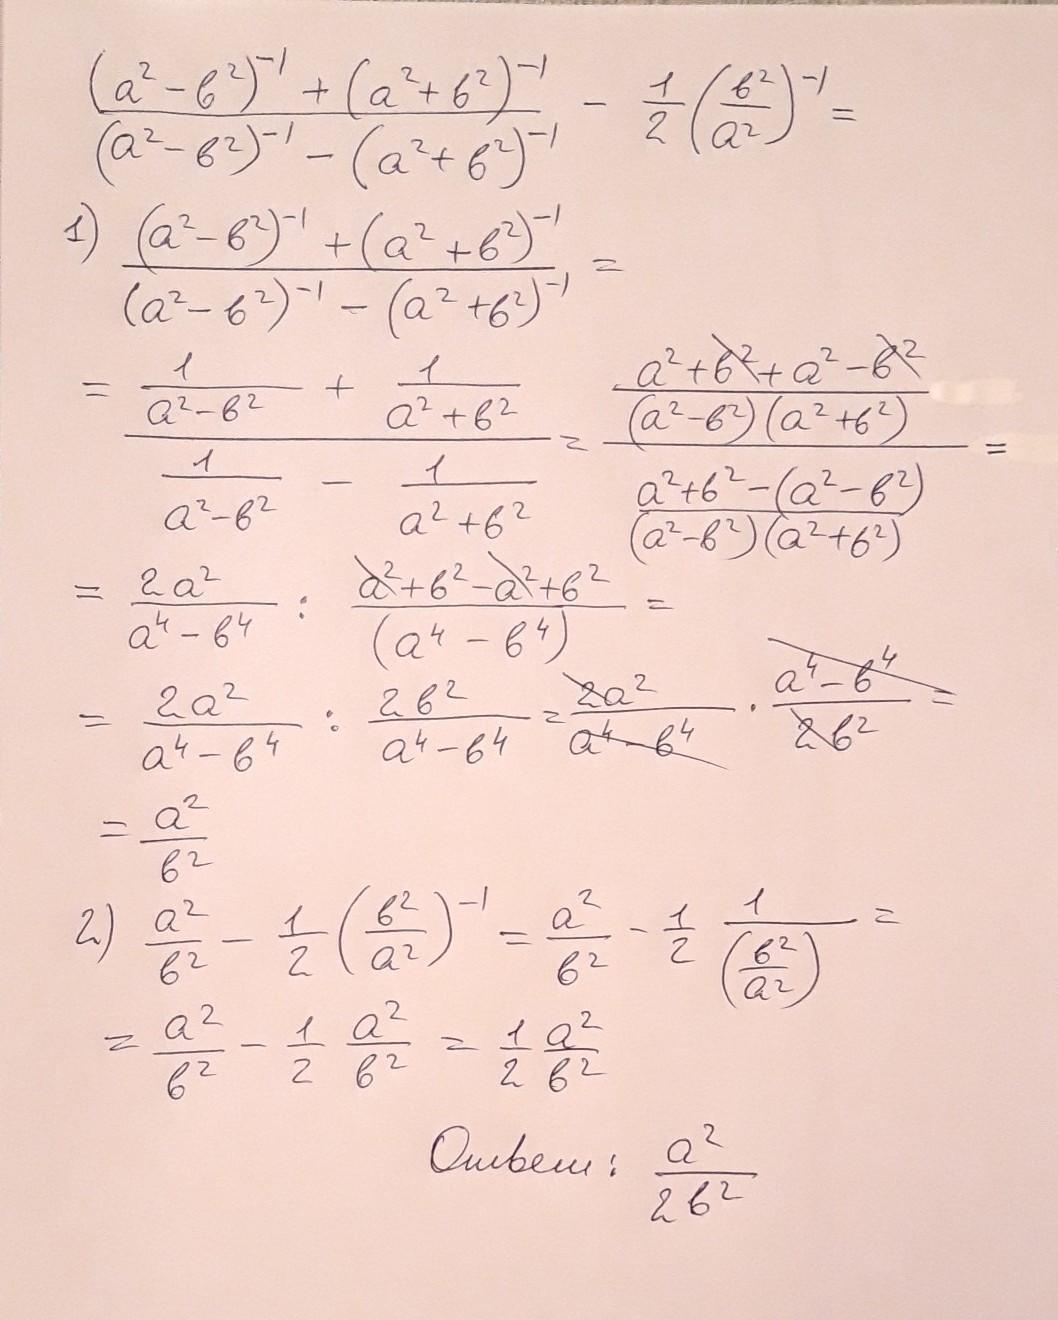 (a² - b²)⁻¹ + (a² + b²)⁻¹ / (a² - b²)⁻¹ - (a² + b²)⁻¹ - 1/2 (b²/a²)⁻¹ =
1) (a² - b²)⁻¹ + (a² + b²)⁻¹ / (a² - b²)⁻¹ - (a² + b²)⁻¹ =
= 1/(a² - b²) + 1/(a² + b²) / 1/(a² - b²) - 1/(a² + b²) = a² + b² + a² - b² / (a² - b²)(a² + b²) / a² + b² - (a² - b²) / (a² - b²)(a² + b²) =
= 2a² / a⁴ - b⁴ : a² + b² - a² + b² / (a⁴ - b⁴) =
= 2a² / a⁴ - b⁴ : 2b² / a⁴ - b⁴ = 2a² / a⁴ - b⁴ · a⁴ - b⁴ / 2b² =
= a²/b²
2) a²/b² - 1/2 (b²/a²)⁻¹ = a²/b² - 1/2 1/(b²/a²) =
= a²/b² - 1/2 a²/b² = 1/2 a²/b²
Ответ: a²/2b²